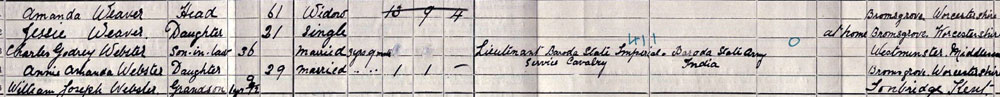 Amanda Weaver Head 61 Widow 13 9 4 Bromsgrove, Worcestershire
Jessie Weaver Daughter 21 Single at home Bromsgrove, Worcestershire
Charles Godrey Webster Son-in-law 36 married 411 Lieutenant Baroda State Imperial Service Cavalry Baroda State Army India 0 Westminster, Middlesex
Annie Amanda Webster Daughter 29 married 1 1 - Bromsgrove, Worcestershire
William Joseph Webster Grandson Tonbridge Kent